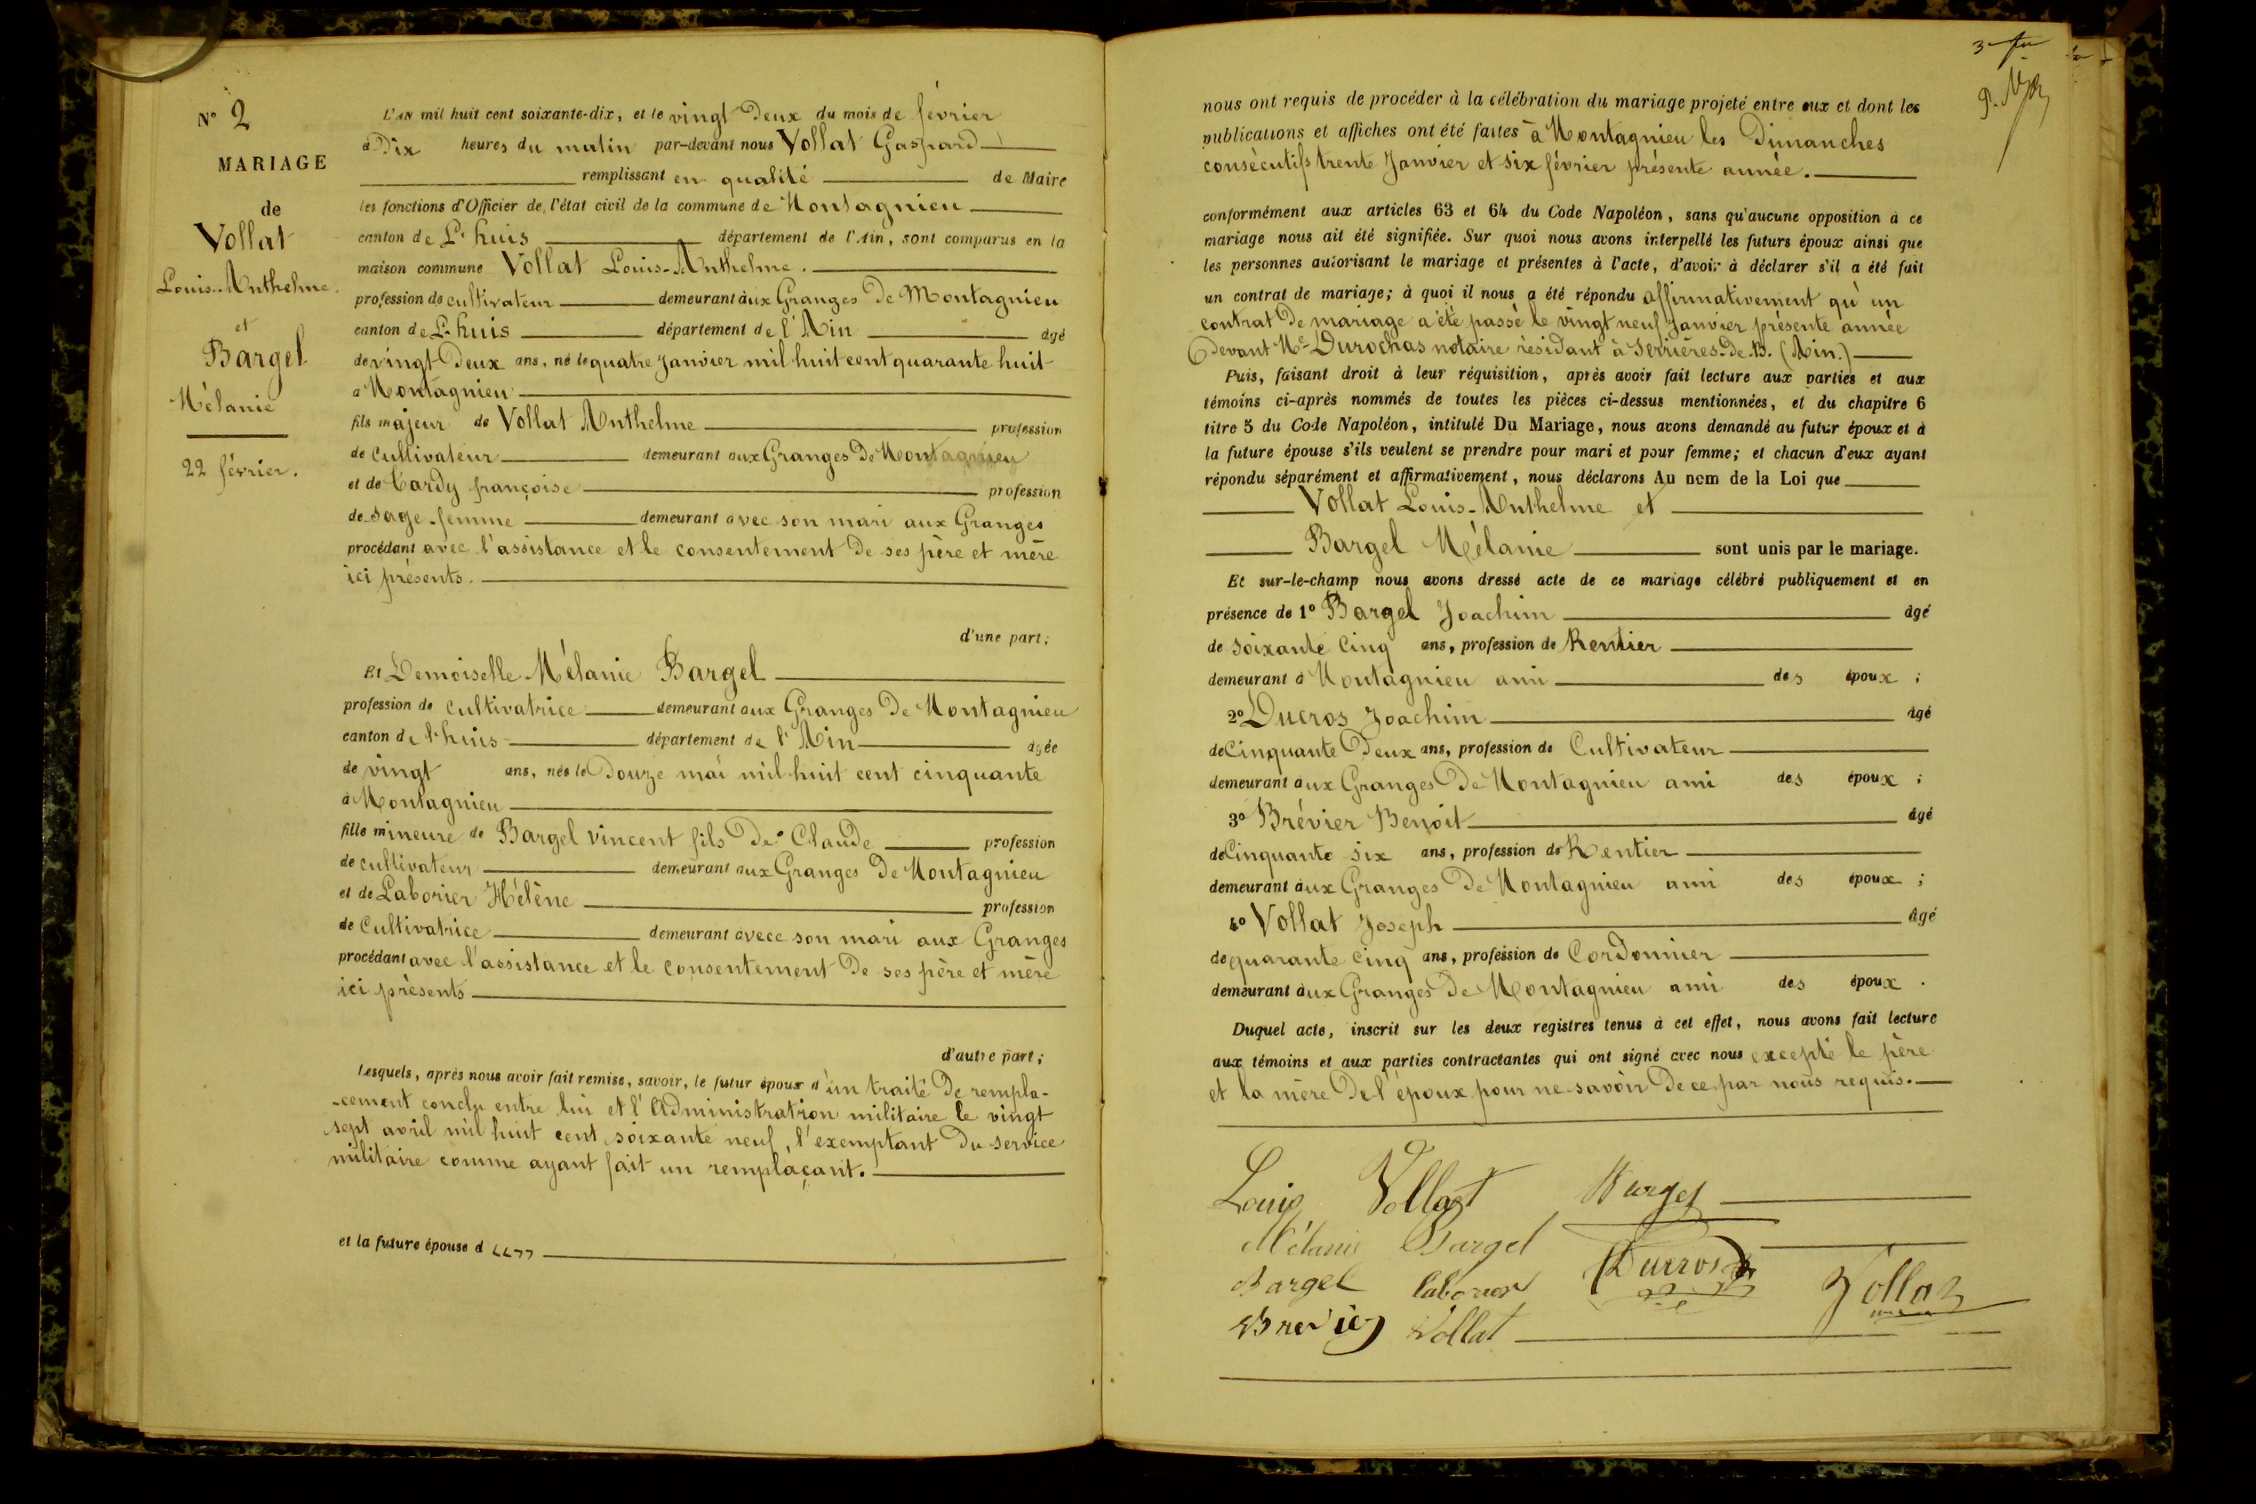 N° 2
MARIAGE
de
Vollat
Louis-Anthelme.
et
Bargel
Mélanie
22 février.
L'AN mil huit cent soixante-dix, et le vingt Deux du mois de février
à Dix heures du matin par-devant nous Vollat Gaspard
remplissant en qualité de Maire
les fonctions d'Officier de l'état civil de la commune de Montagnieu
canton de Lhuis département de l'Ain, sont comparus en la
maison commune Vollat Louis-Anthelme.
profession de cultivateur demeurant aux Granges De Montagnieu
canton de Lhuis département de l'Ain âgé
de vingt Deux ans, né le quatre Janvier mil huit cent quarante huit
à Montagnieu
fils majeur de Vollat Anthelme profession
de cultivateur demeurant aux Granges De Montagnieu
et de Tardy françoise profession
de sage-femme demeurant avec son mari aux Granges
procédant avec l'assistance et le consentement De ses père et mère
ici présents.
d'une part;
Et Demoiselle Mélanie Bargel
profession de cultivatrice demeurant aux Granges De Montagnieu
canton de Lhuis département de l'Ain âgée
de vingt ans, née le Douze mai mil huit cent cinquante
à Montagnieu
fille mineure de Bargel vincent fils De Claude profession
de cultivateur demeurant aux Granges De Montagnieu
et de Laborier Hélène profession
de Cultivatrice demeurant avece son mari aux Granges
procédant avec l'assistance et le consentement De ses père et mère
ici présents
d'autre part;
Lesquels, après nous avoir fait remise, savoir, le futur époux d'un traité De rempla-
-cement conclu entre lui et l'Administration militaire le vingt
sept avril mil huit cent soixante neuf, l'exemptant Du service
militaire comme ayant fait un remplaçant.
et la future épouse d
nous ont requis de procéder à la célébration du mariage projeté entre eux et dont les
publications et affiches ont été faites à Montagnieu les Dimanches
consécutifs trente Janvier et six février présente année.
conformément aux articles 63 et 64 du Code Napoléon, sans qu'aucune opposition à ce
mariage nous ait été signifiée. Sur quoi nous avons interpellé les futurs époux ainsi que
les personnes autorisant le mariage et présentes à l'acte, d'avoir à déclarer s'il a été fait
un contrat de mariage; à quoi il nous a été répondu affirmativement qu'un
contrat De mariage a été passé le vingt neuf Janvier présente année
Devant Me Durochas notaire résidant à Serrières-de-B. (Ain.)
Puis, faisant droit à leur réquisition, après avoir fait lecture aux parties et aux
témoins ci-après nommés de toutes les pièces ci-dessus mentionnées, et du chapitre 6
titre 5 du Code Napoléon, intitulé Du Mariage, nous avons demandé au futur époux et à
la future épouse s'ils veulent se prendre pour mari et pour femme; et chacun d'eux ayant
répondu séparément et affirmativement, nous déclarons Au nom de la Loi que
Vollat Louis-Anthelme et
Bargel Mélanie sont unis par le mariage.
Et sur-le-champ nous avons dressé acte de ce mariage célébré publiquement et en
présence de 1° Bargel Joachim âgé
de soixante Cinq ans, profession de Rentier
demeurant à Montagnieu ami des époux ;
2° Ducros Joachim âgé
de Cinquante Deux ans, profession de Cultivateur
demeurant aux Granges De Montagnieu ami des époux ;
3° Brévier Benoit âgé
de Cinquante six ans, profession de Rentier
demeurant aux Granges De Montagnieu ami des époux ;
4° Vollat Joseph âgé
de quarante Cinq ans, profession de Cordonnier
demeurant aux Granges De Montagnieu ami des époux .
Duquel acte, inscrit sur les deux registres tenus à cet effet, nous avons fait lecture
aux témoins et aux parties contractantes qui ont signé avec nous excepté le père
et la mère De l'époux pour ne savoir De ce par nous requis.
Louis Vollat Bargel
Mélanie Bargel
Ducros
Bargel laborier
Vollat
Brevier Vollat